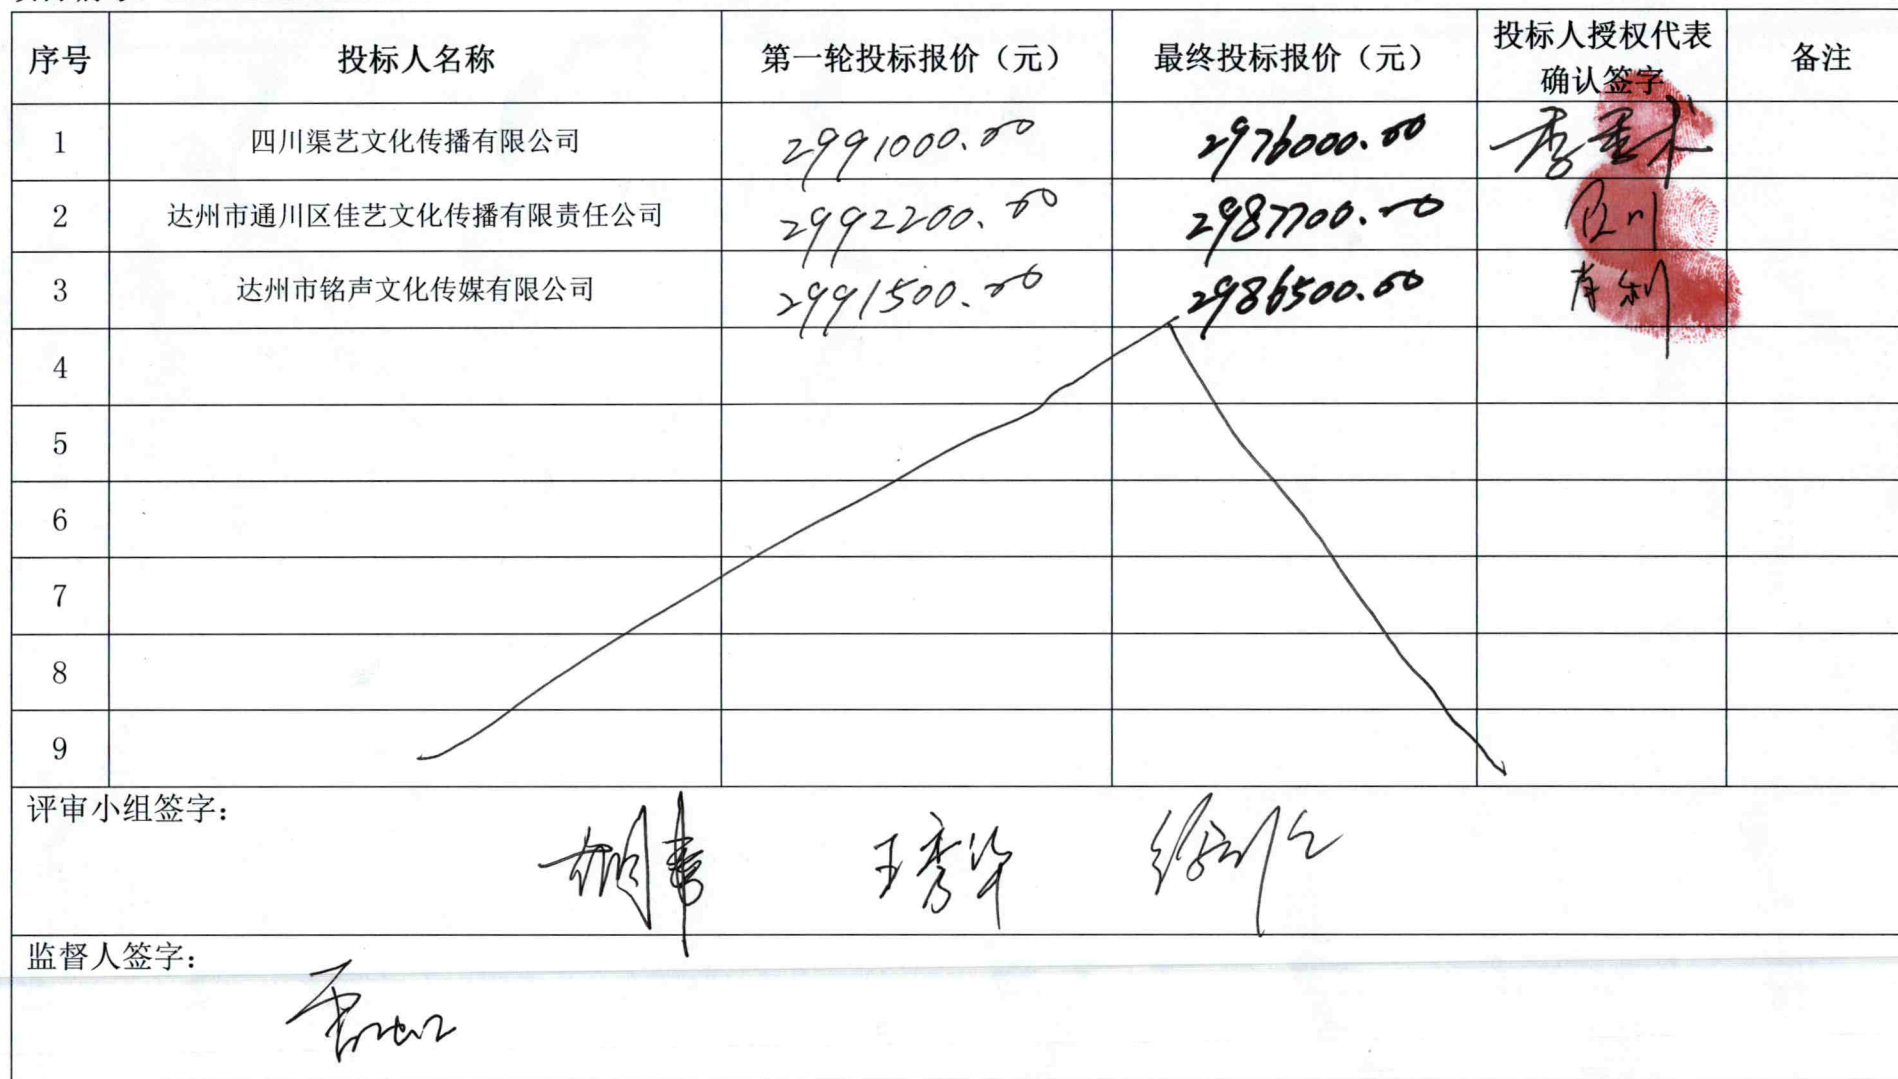 序号 投标人名称 第一轮投标报价（元） 最终投标报价（元） 投标人授权代表确认签字 备注
1 四川渠艺文化传播有限公司 2991000.00 2976000.00
2 达州市通川区佳艺文化传播有限责任公司 2992200.00 2987700.00
3 达州市铭声文化传媒有限公司 2991500.00 2986500.00 肖利
4
5
6
7
8
9
评审小组签字：
王秀华
监督人签字：